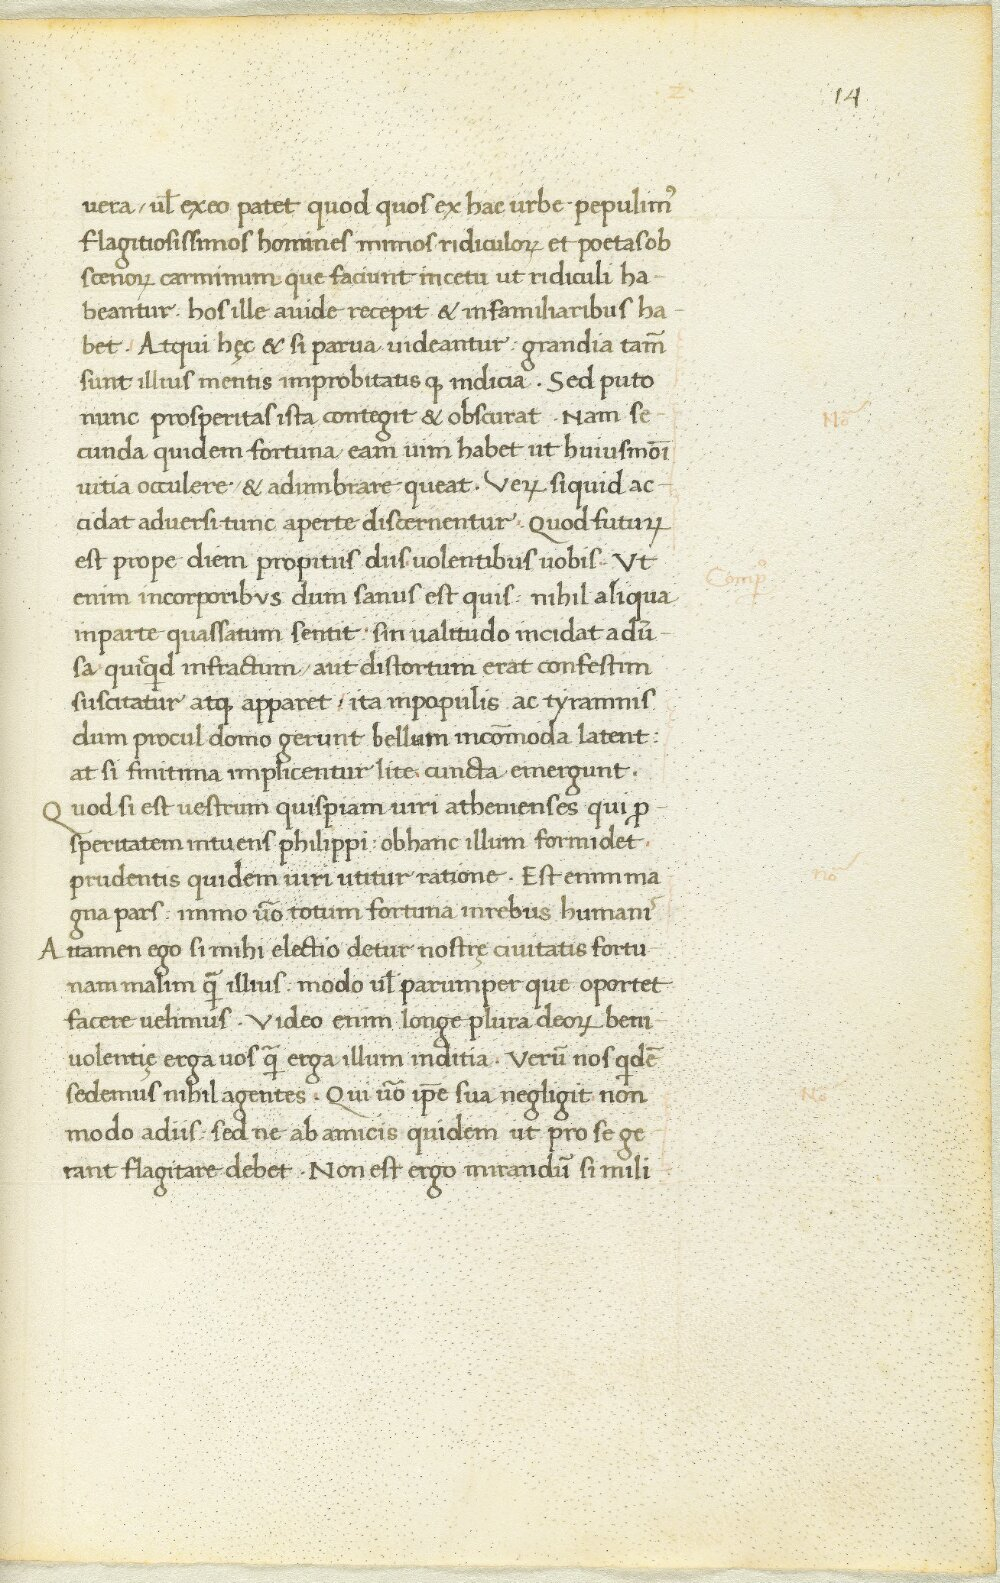 z·
14
uera / ul̄ exeo patet quod quos ex hac urbe · pepulimꝰ
flagitiosissimos homines mimos ridiculoꝝ et poetas ob
scenoꝝ carminum · que faciunt incetu ut ridiculi ha-
beantur · hos ille auide recepit & infamiliaribus ha-
bet · Atqui hęc & si parua uideantur : grandia tam̄
sunt illius mentis improbitatis qꝫ indicia · Sed puto
nunc prosperitas ista contegit & obscurat · Nam se-
cunda quidem fortuna eam uim habet ut huiusmōi
uitia occulere / & adumbrare queat · Veꝝ siquid ac-
cidat aduersi · tunc aperte discernentur · Quod futuꝝ
est prope diem propitiis diis uolentibus uobis · Vt
enim incorporibus dum sanus est quis : nihil aliqua
inparte quassatum sentit · sin ualitudo incidat adu̅-
sa quicqd infractum / aut distortum erat confestim
suscitatur atqꝫ apparet / ita inpopulis ac tyrannis
dum procul domo gerunt bellum incōmoda latent :
at si finitima implicentur lite cuncta emergunt ·
Quod si est uestrum quispiam uiri athenienses qui ꝓ-
speritatem intuens philippi : obhanc illum formidet ·
prudentis quidem uiri utitur ratione · Est enim ma
gna pars : immo uo̅ totum fortuna inrebus humanis
Attamen ego si mihi electio detur nostrę ciuitatis fortu-
nam malim qm̅ illius : modo ul̄ parumper que oportet
facere uelimus · Video enim longe plura deoꝝ beni-
uolentię erga uos qm̅ erga illum inditia · Verū nos qdē
sedemus nihil agentes · Qui uo̅ ip̄e sua negligit non
modo adiis : sed ne ab amicis quidem ut pro se ge-
rant flagitare debet · Non est ergo mirandū si mili
No̅
Compº
no̅
No